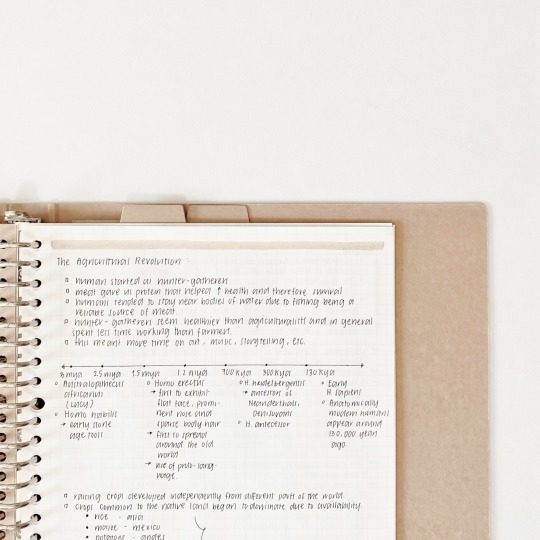 The Agricultural Revolution:
human started as hunter-gatherers
meat gave us protein that helped ↑ health and therefore survival
humans tended to stay near bodies of water due to fishing being a
reliable source of meat.
hunter-gatherers seem healthier than agriculturalists and in general
spent less time working than farmers.
this meant more time on art, music, storytelling, etc.
3 mya 2.5 mya 1.5 mya 1.2 mya 700 kya 300 kya 130 kya
Australopithecus
africanus
(Lucy)
Homo habilis
→ early stone
age tool
Homo erectus
→ first to exhibit
flat face, promi-
nent nose and
sparse body hair
→ first to spread
around the old
world
→ use of proto-lang-
uage.
H. heidelbergensis
→ ancestor of
Neanderthals,
Denisovans
H. antecessor
Early
H. sapiens
Anatomically
modern humans
appear around
130,000 years
ago.
raising crops developed independently from different parts of the world.
crops common to the native land began to dominate due to availability.
rice - asia
maize - mexico
potatoes - andes